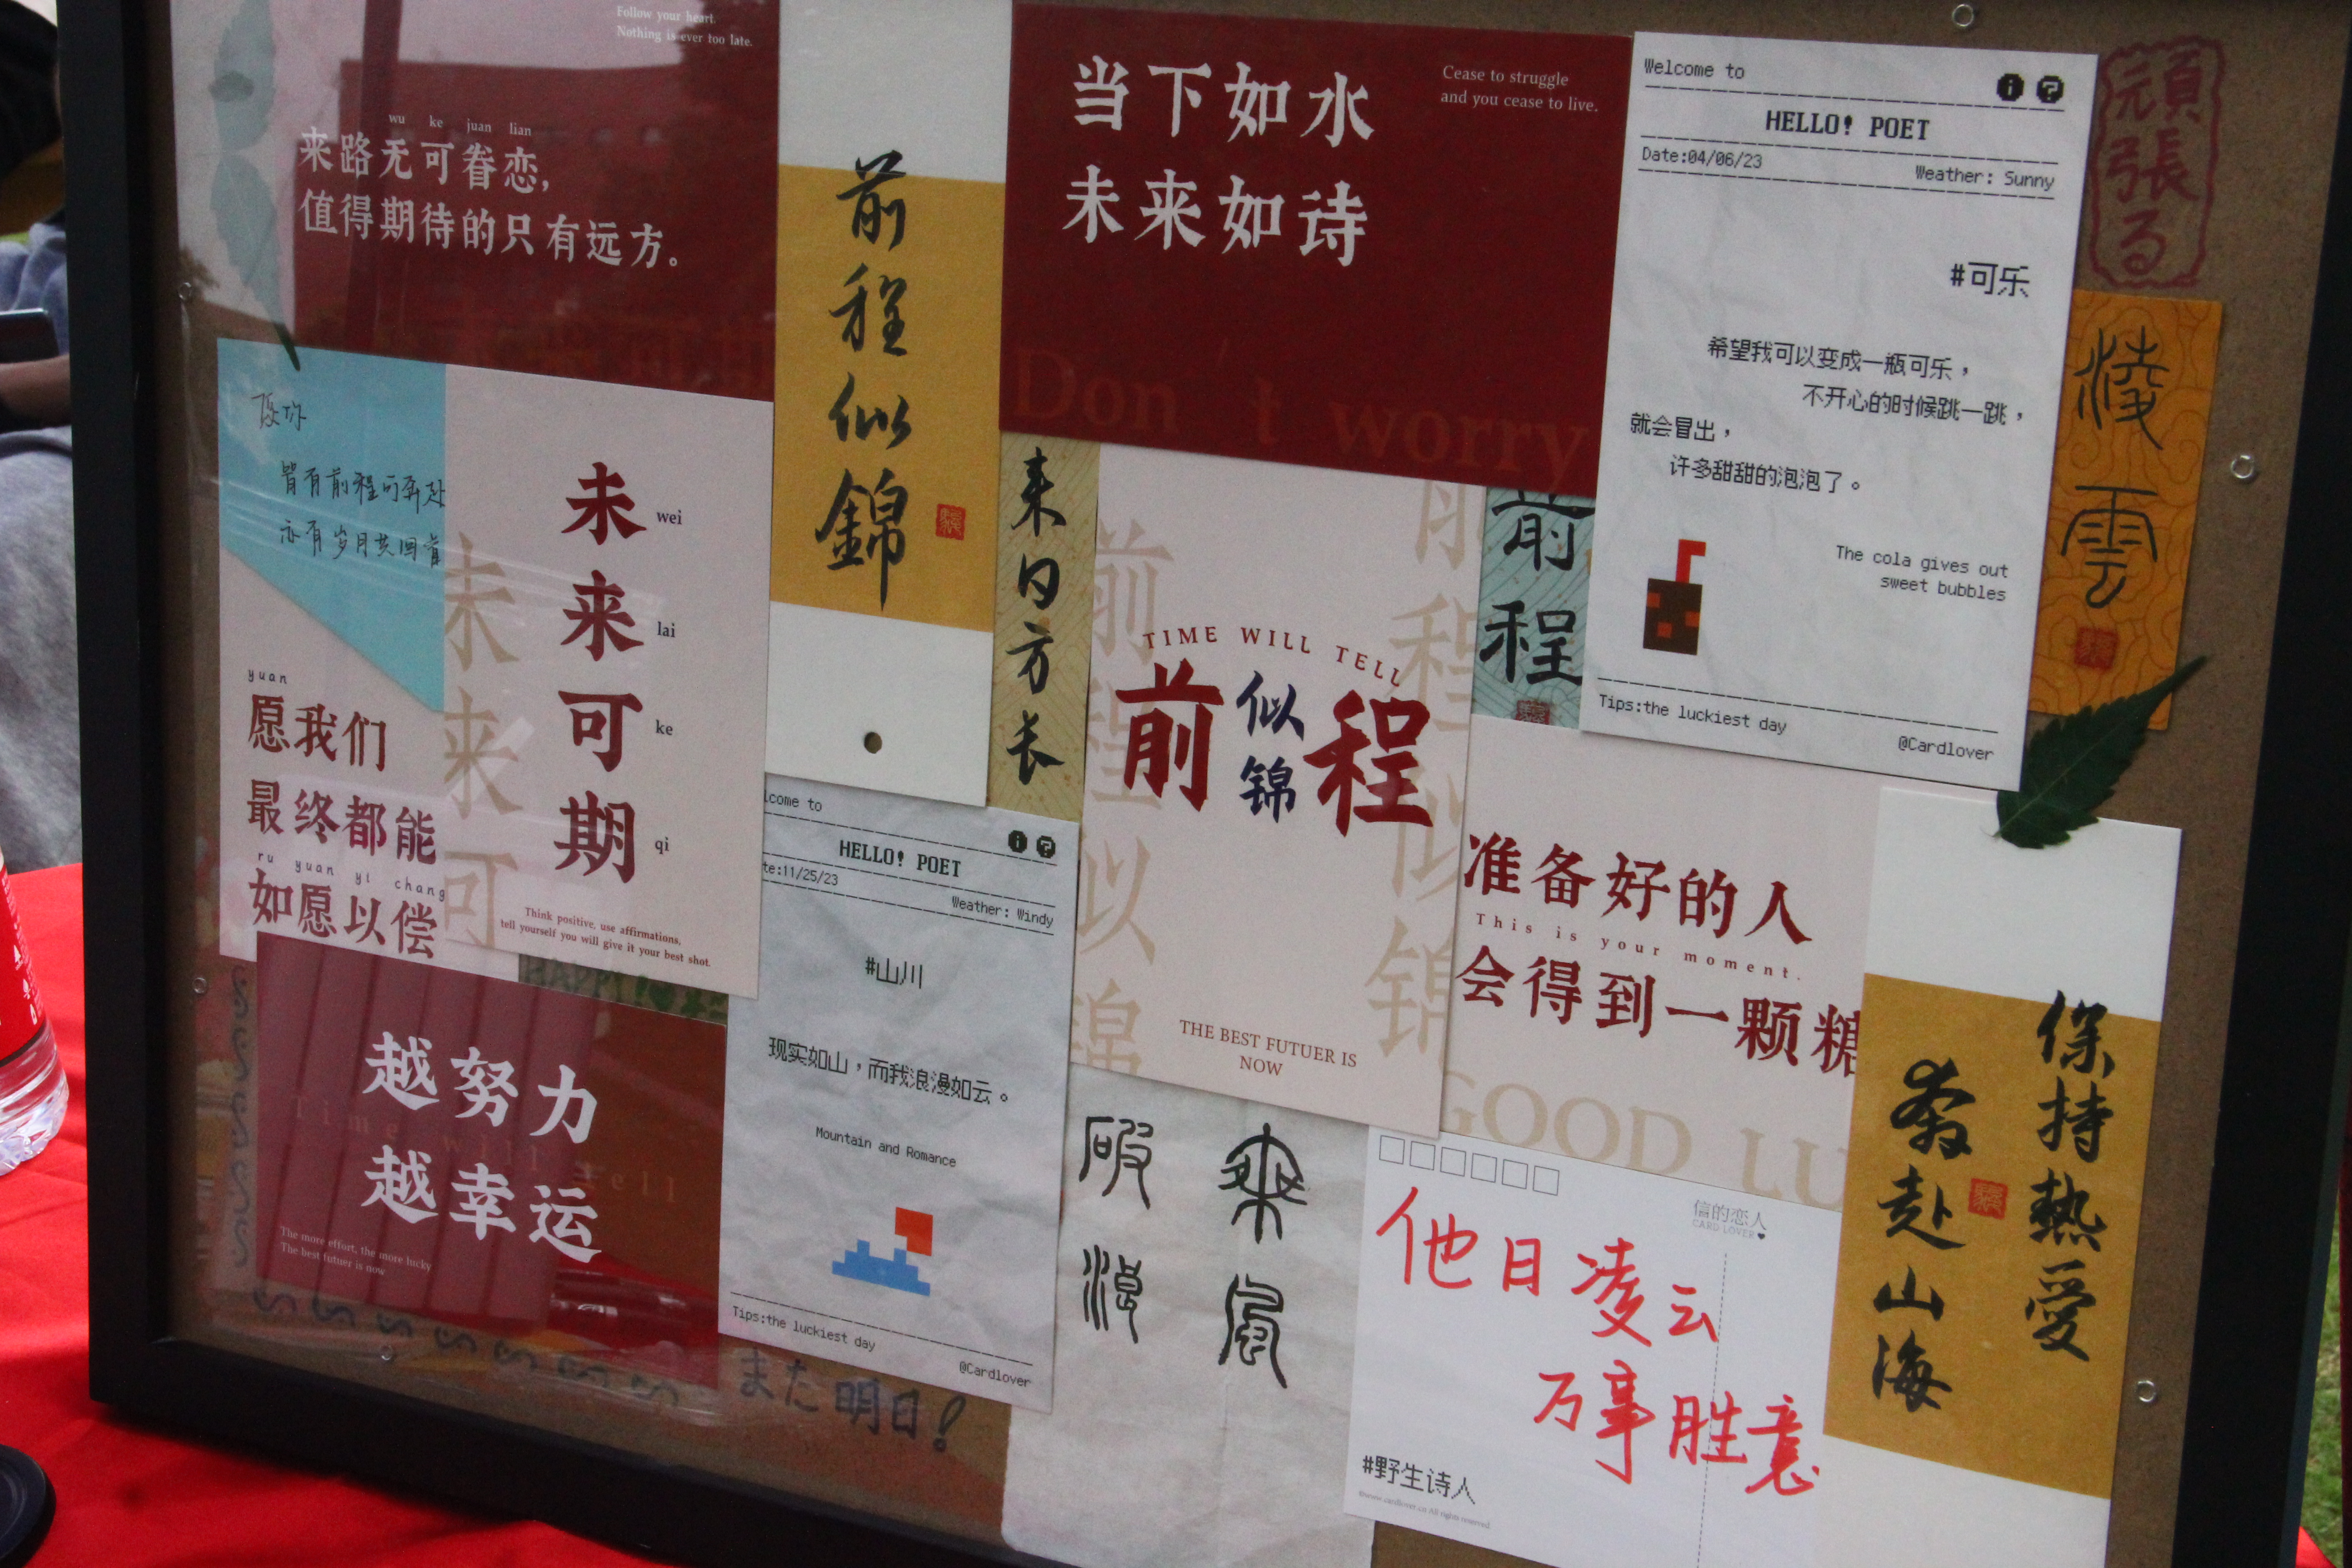 Follow your heart.
Nothing is ever too late.
wu ke juan lian
来路无可眷恋,
值得期待的只有远方。
前程似錦
当下如水
未来如诗
Cease to struggle
and you cease to live.
Don't worry
Welcome to
HELLO! POET
Date:04/06/23
Weather: Sunny
#可乐
希望我可以变成一瓶可乐，
不开心的时候跳一跳，
就会冒出，
许多甜甜的泡泡了。
The cola gives out
sweet bubbles
Tips:the luckiest day
@Cardlover
頑張る
凌雲
皆有前程可奔赴
亦有岁月共回首
yuan
愿我们
最终都能
ru yuan yi chang
如愿以偿
未来可
未 wei
来 lai
可 ke
期 qi
Think positive, use affirmations,
tell yourself you will give it your best shot.
来日方长
前程似锦
前程似锦
TIME WILL TELL
前似锦程
THE BEST FUTUER IS
NOW
前程
准备好的人
This is your moment.
会得到一颗糖
GOOD LU
保持熱愛
奔赴山海
HAPPY
越努力
越幸运
Time will tell
The more effort, the more lucky
The best futuer is now
lcome to
HELLO! POET
te:11/25/23
Weather: Windy
#山川
现实如山，而我浪漫如云。
Mountain and Romance
Tips:the luckiest day
@Cardlover
また明日!
乘风
破浪
信的恋人
CARD LOVER
他日凌云
万事胜意
#野生诗人
©www.cardlover.cn All rights reserved.